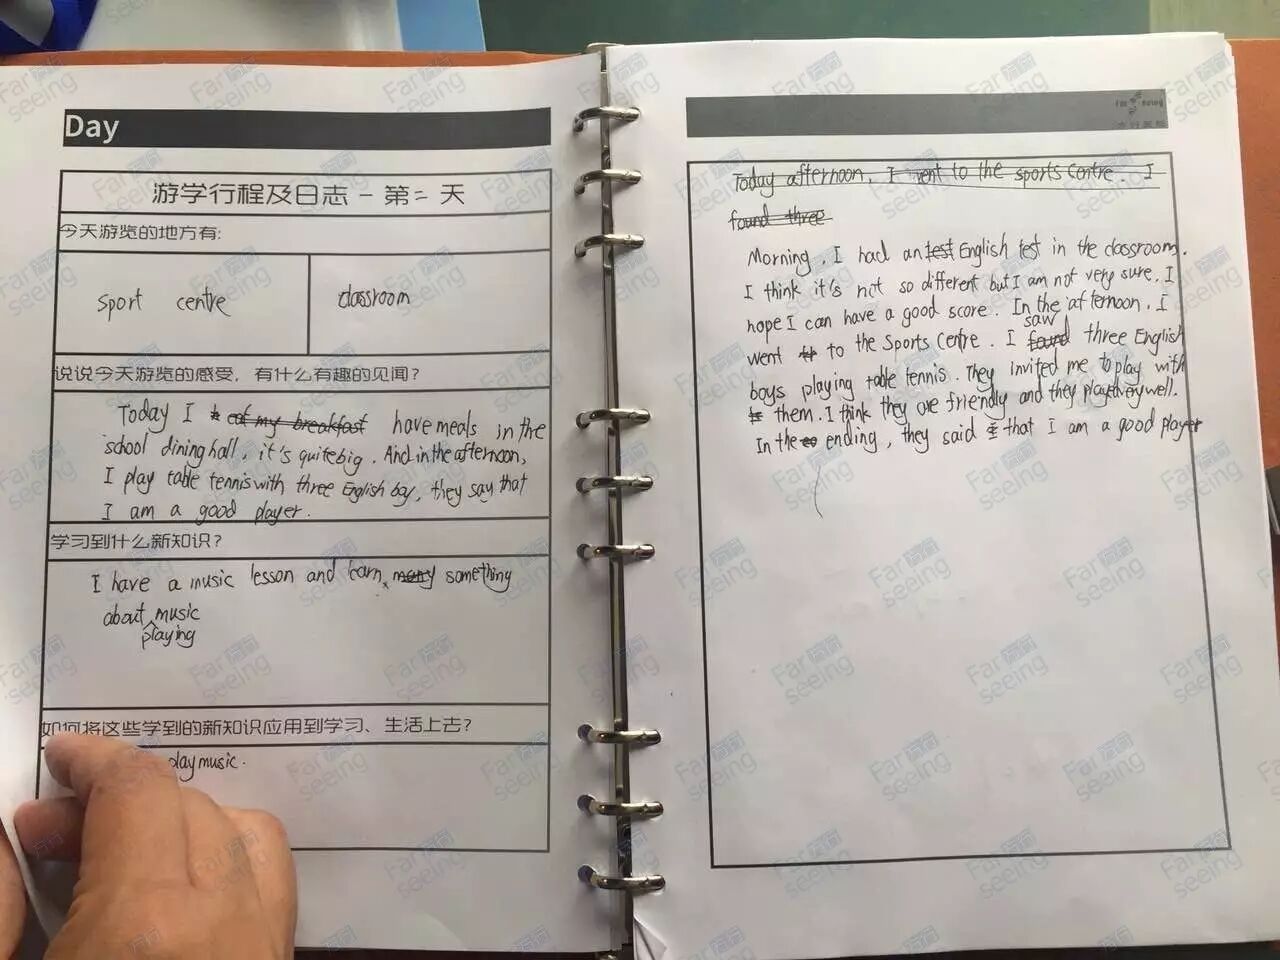 Day
游学行程及日志 - 第二 天
今天游览的地方有:
sport centre
classroom
说说今天游览的感受，有什么有趣的见闻？
Today I eat my breakfast have meals in the
school dining hall, it's quite big. And in the afternoon,
I play table tennis with three English boy, they say that
I am a good player.
学习到什么新知识？
I have a music lesson and learn many something
about playing music
如何将这些学到的新知识应用到学习、生活上去？
play music.
Today afternoon, I went to the sports centre. I
found three
Morning, I had an test English test in the classroom.
I think it's not so different but I am not very sure. I
hope I can have a good score. In the afternoon, I
went to the Sports Centre. I found saw three English
boys playing table tennis. They invited me to play with
them. I think they are friendly and they played very well.
In the ending, they said that I am a good player
Far seeing